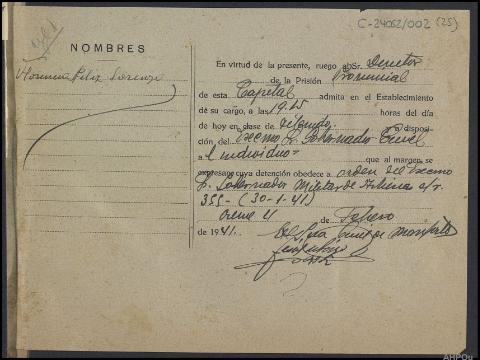 C-24052/002 (25)
NOMBRES
Felix Lorenzo
En virtud de la presente, ruego al Sr. Director
de la Prisión Provincial
de esta Capital admita en el Establecimiento
de su cargo, a las 19.15 horas del día
de hoy en clase de detenido a disposi-
ción del Excmo Sr. Gobernador Civil
al individuo que al margen se
expresa cuya detención obedece a orden del Excmo
Sr. Gobernador Militar de s/r.
355- (30-1-41)
de Febrero
de 1941.
El
AHPOu